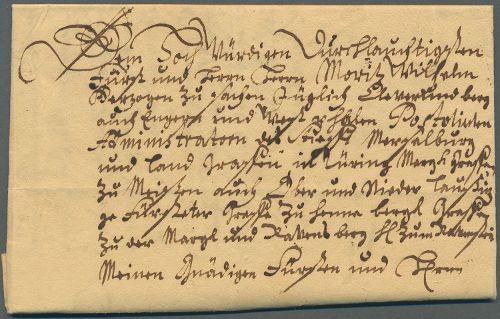 Dem Hoch Würdigen Durchlauchtigsten
Fürst und Herrn Herrn Moritz Wilhelm
Herzogen zu Sachsen Jüglich Cleve und berg
auch Engern und West phalen Postolirten
Administratorn des Stiffts Merseburg
und Land Graffen in Türing Marggraffen
zu Meissen auch Ober und Nieder Laussitz
ge Fürsteter Graffe zu Henne bergk Graffen
zu der Margk und Ravens berg H. zum Ravenstein
Meinen Gnädigen Fürsten und Herrn